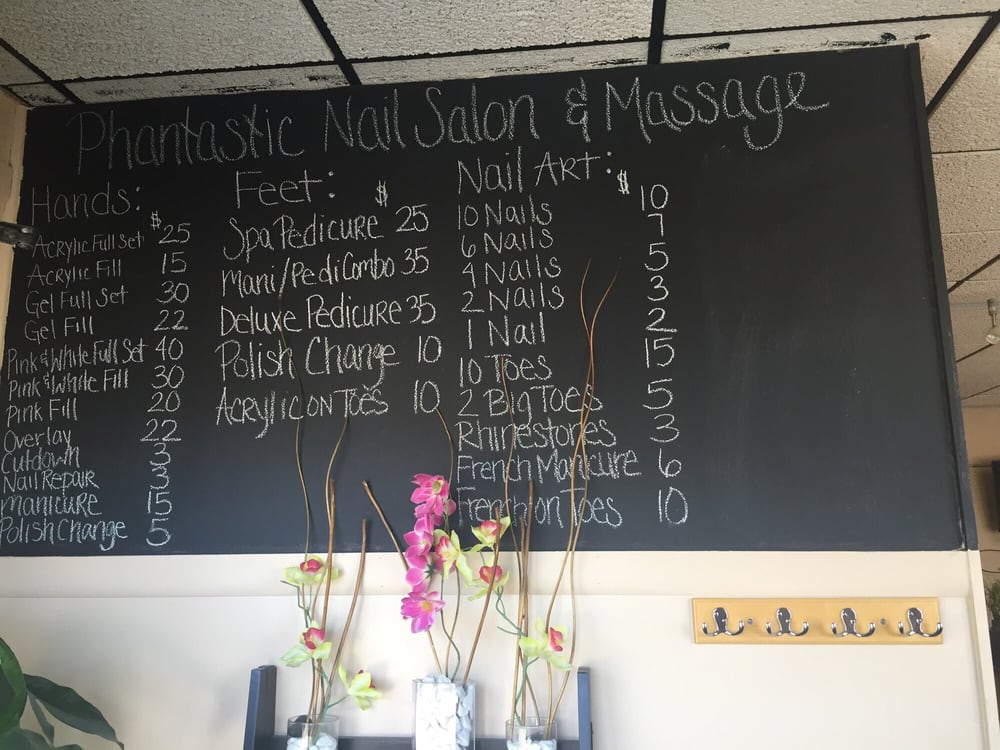 Phantastic Nail Salon & Massage
Hands:
$
Acrylic Full Set 25
Acrylic Fill 15
Gel Full Set 30
Gel Fill 22
Pink & White Full Set 40
Pink & White Fill 30
Pink Fill 20
Overlay 22
Cutdown 3
Nail Repair 3
Manicure 15
Polish Change 5
Feet: $
Spa Pedicure 25
Mani/Pedi Combo 35
Deluxe Pedicure 35
Polish Change 10
Acrylic on Toes 10
Nail Art: $
10 Nails 10
6 Nails 7
4 Nails 5
2 Nails 3
1 Nail 2
10 Toes 15
2 Big Toes 5
Rhinestones 3
French Manicure 6
French on Toes 10